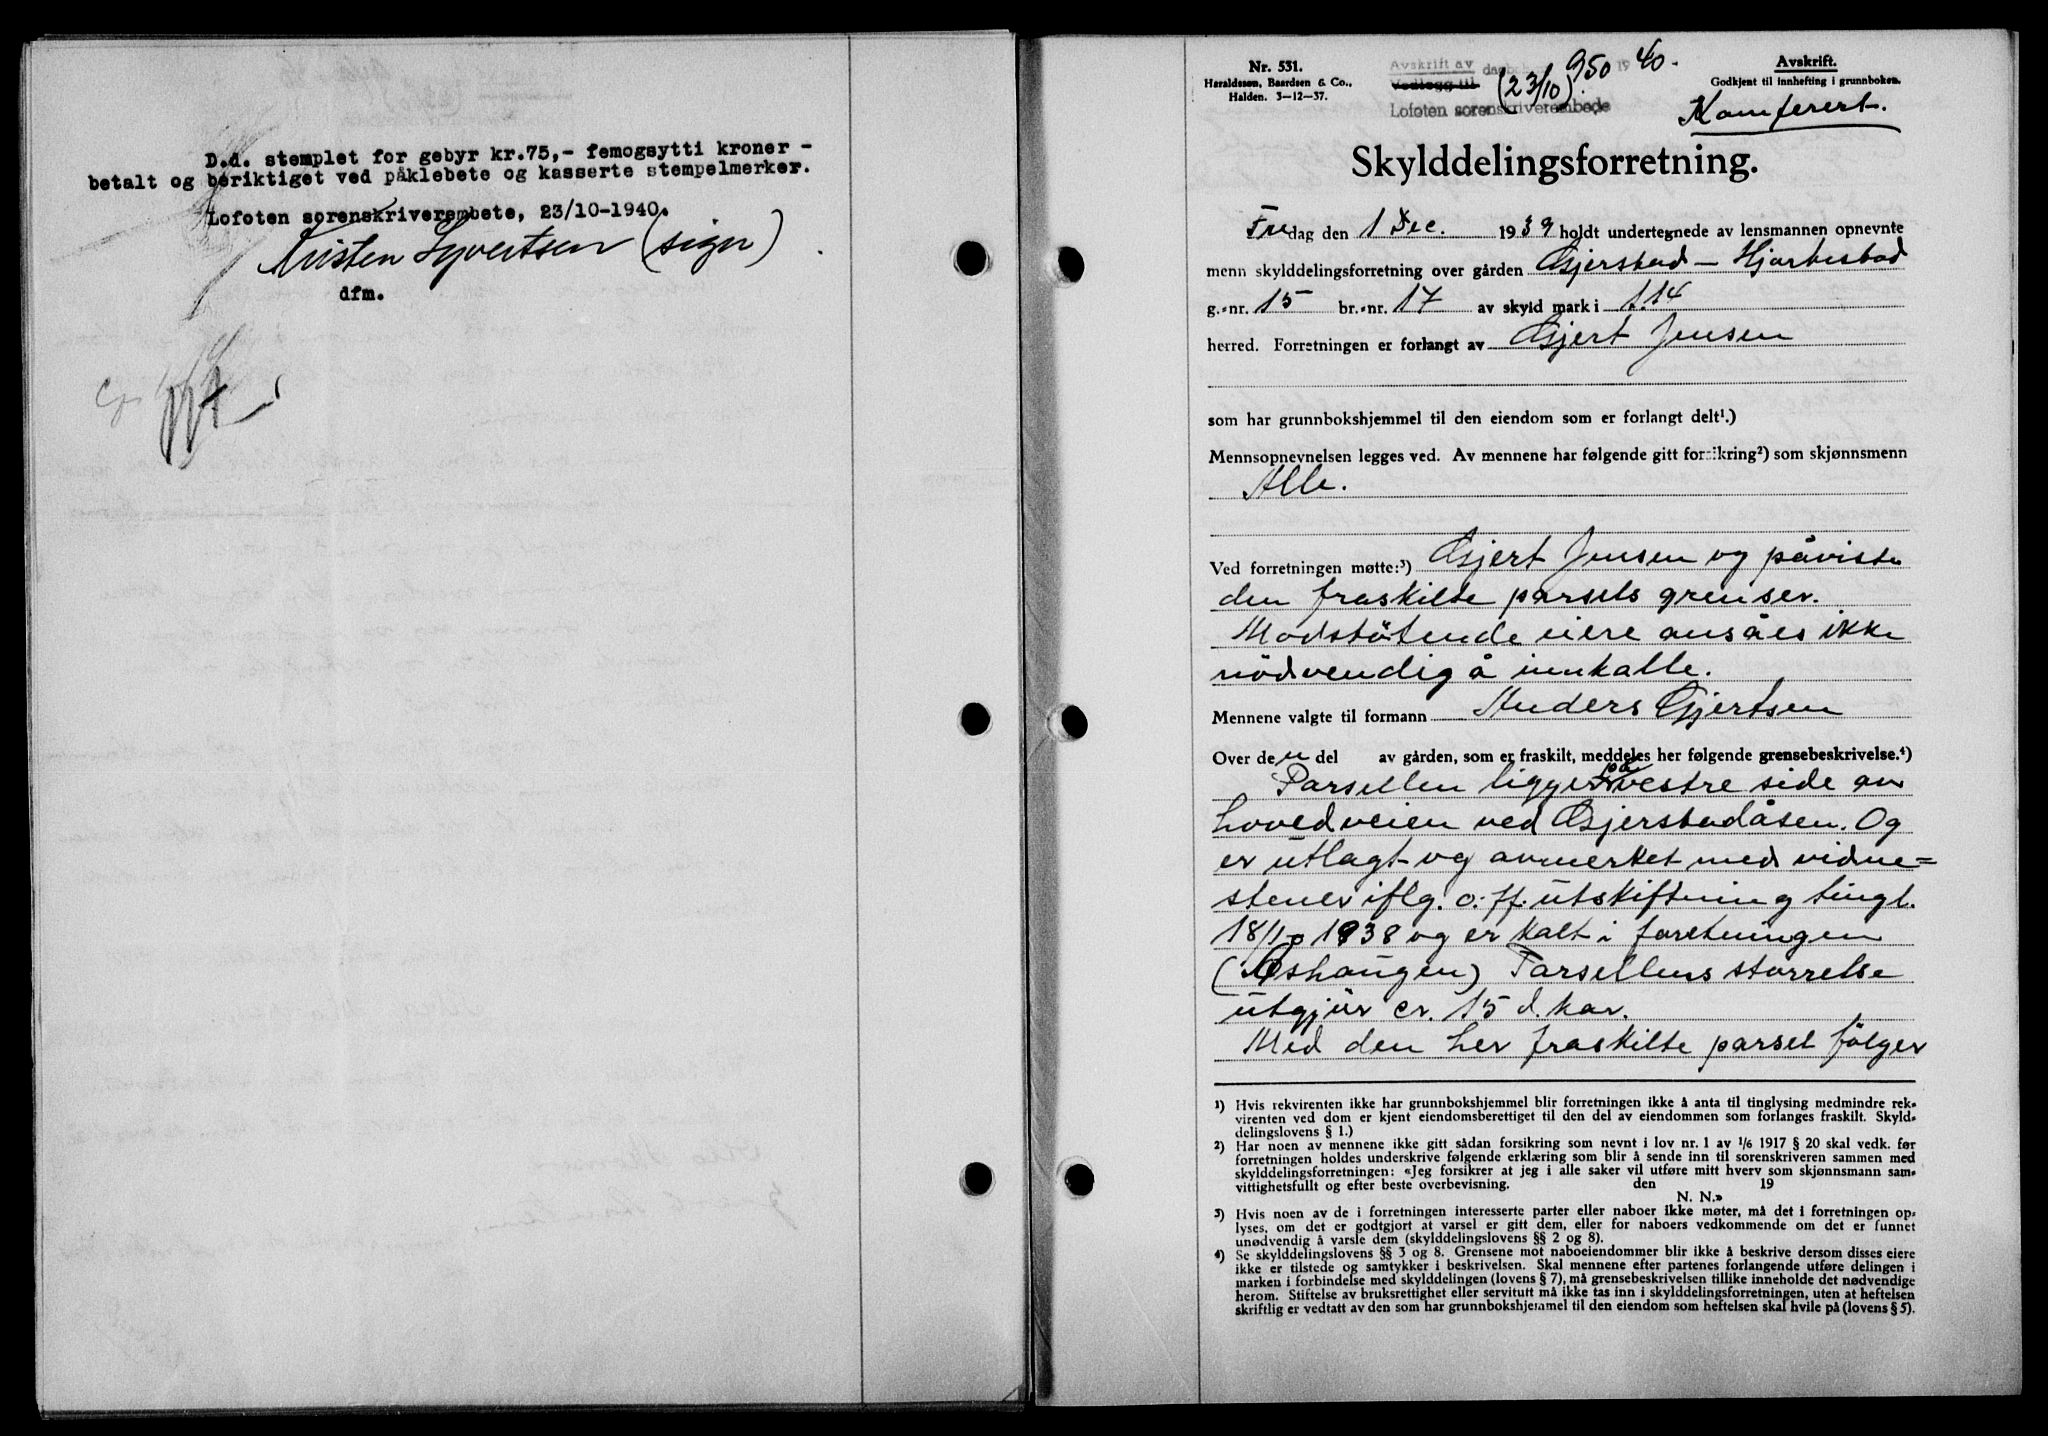 D.d. stemplet for gebyr kr.75,- femogsytti kroner -
betalt og beriktiget ved påklebete og kasserte stempelmerker.
Lofoten sorenskriverembete, 23/10-1940.
Kristen Syvertsen (sign)
dfm.
Nr. 531.
Haraldssen, Baardsen & Co.,
Halden. 3-12-37.
Avskrift av dagbok 950 1940.
Vedlegg til (23/10).
Lofoten sorenskriverembede
Avskrift.
Godkjent til innhefting i grunnboken.
Konferert.
Skylddelingsforretning.
Fredag den 1 Dec. 1939 holdt undertegnede av lensmannen opnevnte
menn skylddelingsforretning over gården Gjerstad - Hjartestad
g.-nr. 15 br.-nr. 17 av skyld mark i 1.14
herred. Forretningen er forlangt av Gjert Jensen
som har grunnbokshjemmel til den eiendom som er forlangt delt¹.)
Mennsopnevnelsen legges ved. Av mennene har følgende gitt forsikring²) som skjønnsmenn
Alle.
Ved forretningen møtte:³) Gjert Jensen og påviste
den fraskilte parsels grenser.
Modstötende eiere ansåes ikke
nödvendig å innkalle.
Mennene valgte til formann Anders Gjertsen
Over den del av gården, som er fraskilt, meddeles her følgende grensebeskrivelse.⁴)
Parsellen ligger på vestre side av
hovedveien ved Gjerstadåsen. Og
er utlagt og avmerket med vidne=
stener iflg. o. ff. utskiftning tingl.
18/1-1938 og er kalt i foretningen
(Åshaugen) Parsellens storrelse
utgjör cr. 15 d. kar.
Med den her fraskilte parsel fölger
¹) Hvis rekvirenten ikke har grunnbokshjemmel blir forretningen ikke å anta til tinglysing medmindre rek-
virenten ved dom er kjent eiendomsberettiget til den del av eiendommen som forlanges fraskilt. Skyld-
delingslovens § 1.)
²) Har noen av mennene ikke gitt sådan forsikring som nevnt i lov nr. 1 av 1/6 1917 § 20 skal vedk. før
forretningen holdes underskrive følgende erklæring som blir å sende inn til sorenskriveren sammen med
skylddelingsforretningen: «Jeg forsikrer at jeg i alle saker vil utføre mitt hverv som skjønnsmann sam-
vittighetsfullt og efter beste overbevisning. den 19
N. N.»
³) Hvis noen av de i forretningen interesserte parter eller naboer ikke møter, må det i forretningen op-
lyses, om det er godtgjort at varsel er gitt dem, eller for naboers vedkommende om det er funnet
unødvendig å varsle dem (skylddelingslovens §§ 2 og 8).
⁴) Se skylddelingslovens §§ 3 og 8. Grensene mot naboeiendommer blir ikke å beskrive dersom disses eiere
ikke er tilstede og samtykker i beskrivelsen. Skal mennene efter partenes forlangende utføre delingen i
marken i forbindelse med skylddelingen (lovens § 7), må grensebeskrivelsen tillike inneholde det nødvendige
herom. Stiftelse av bruksrettighet eller servitutt må ikke tas inn i skylddelingsforretningen, uten at heftelsen
skriftlig er vedtatt av den som har grunnbokshjemmel til den eiendom som heftelsen skal hvile på (lovens § 5).